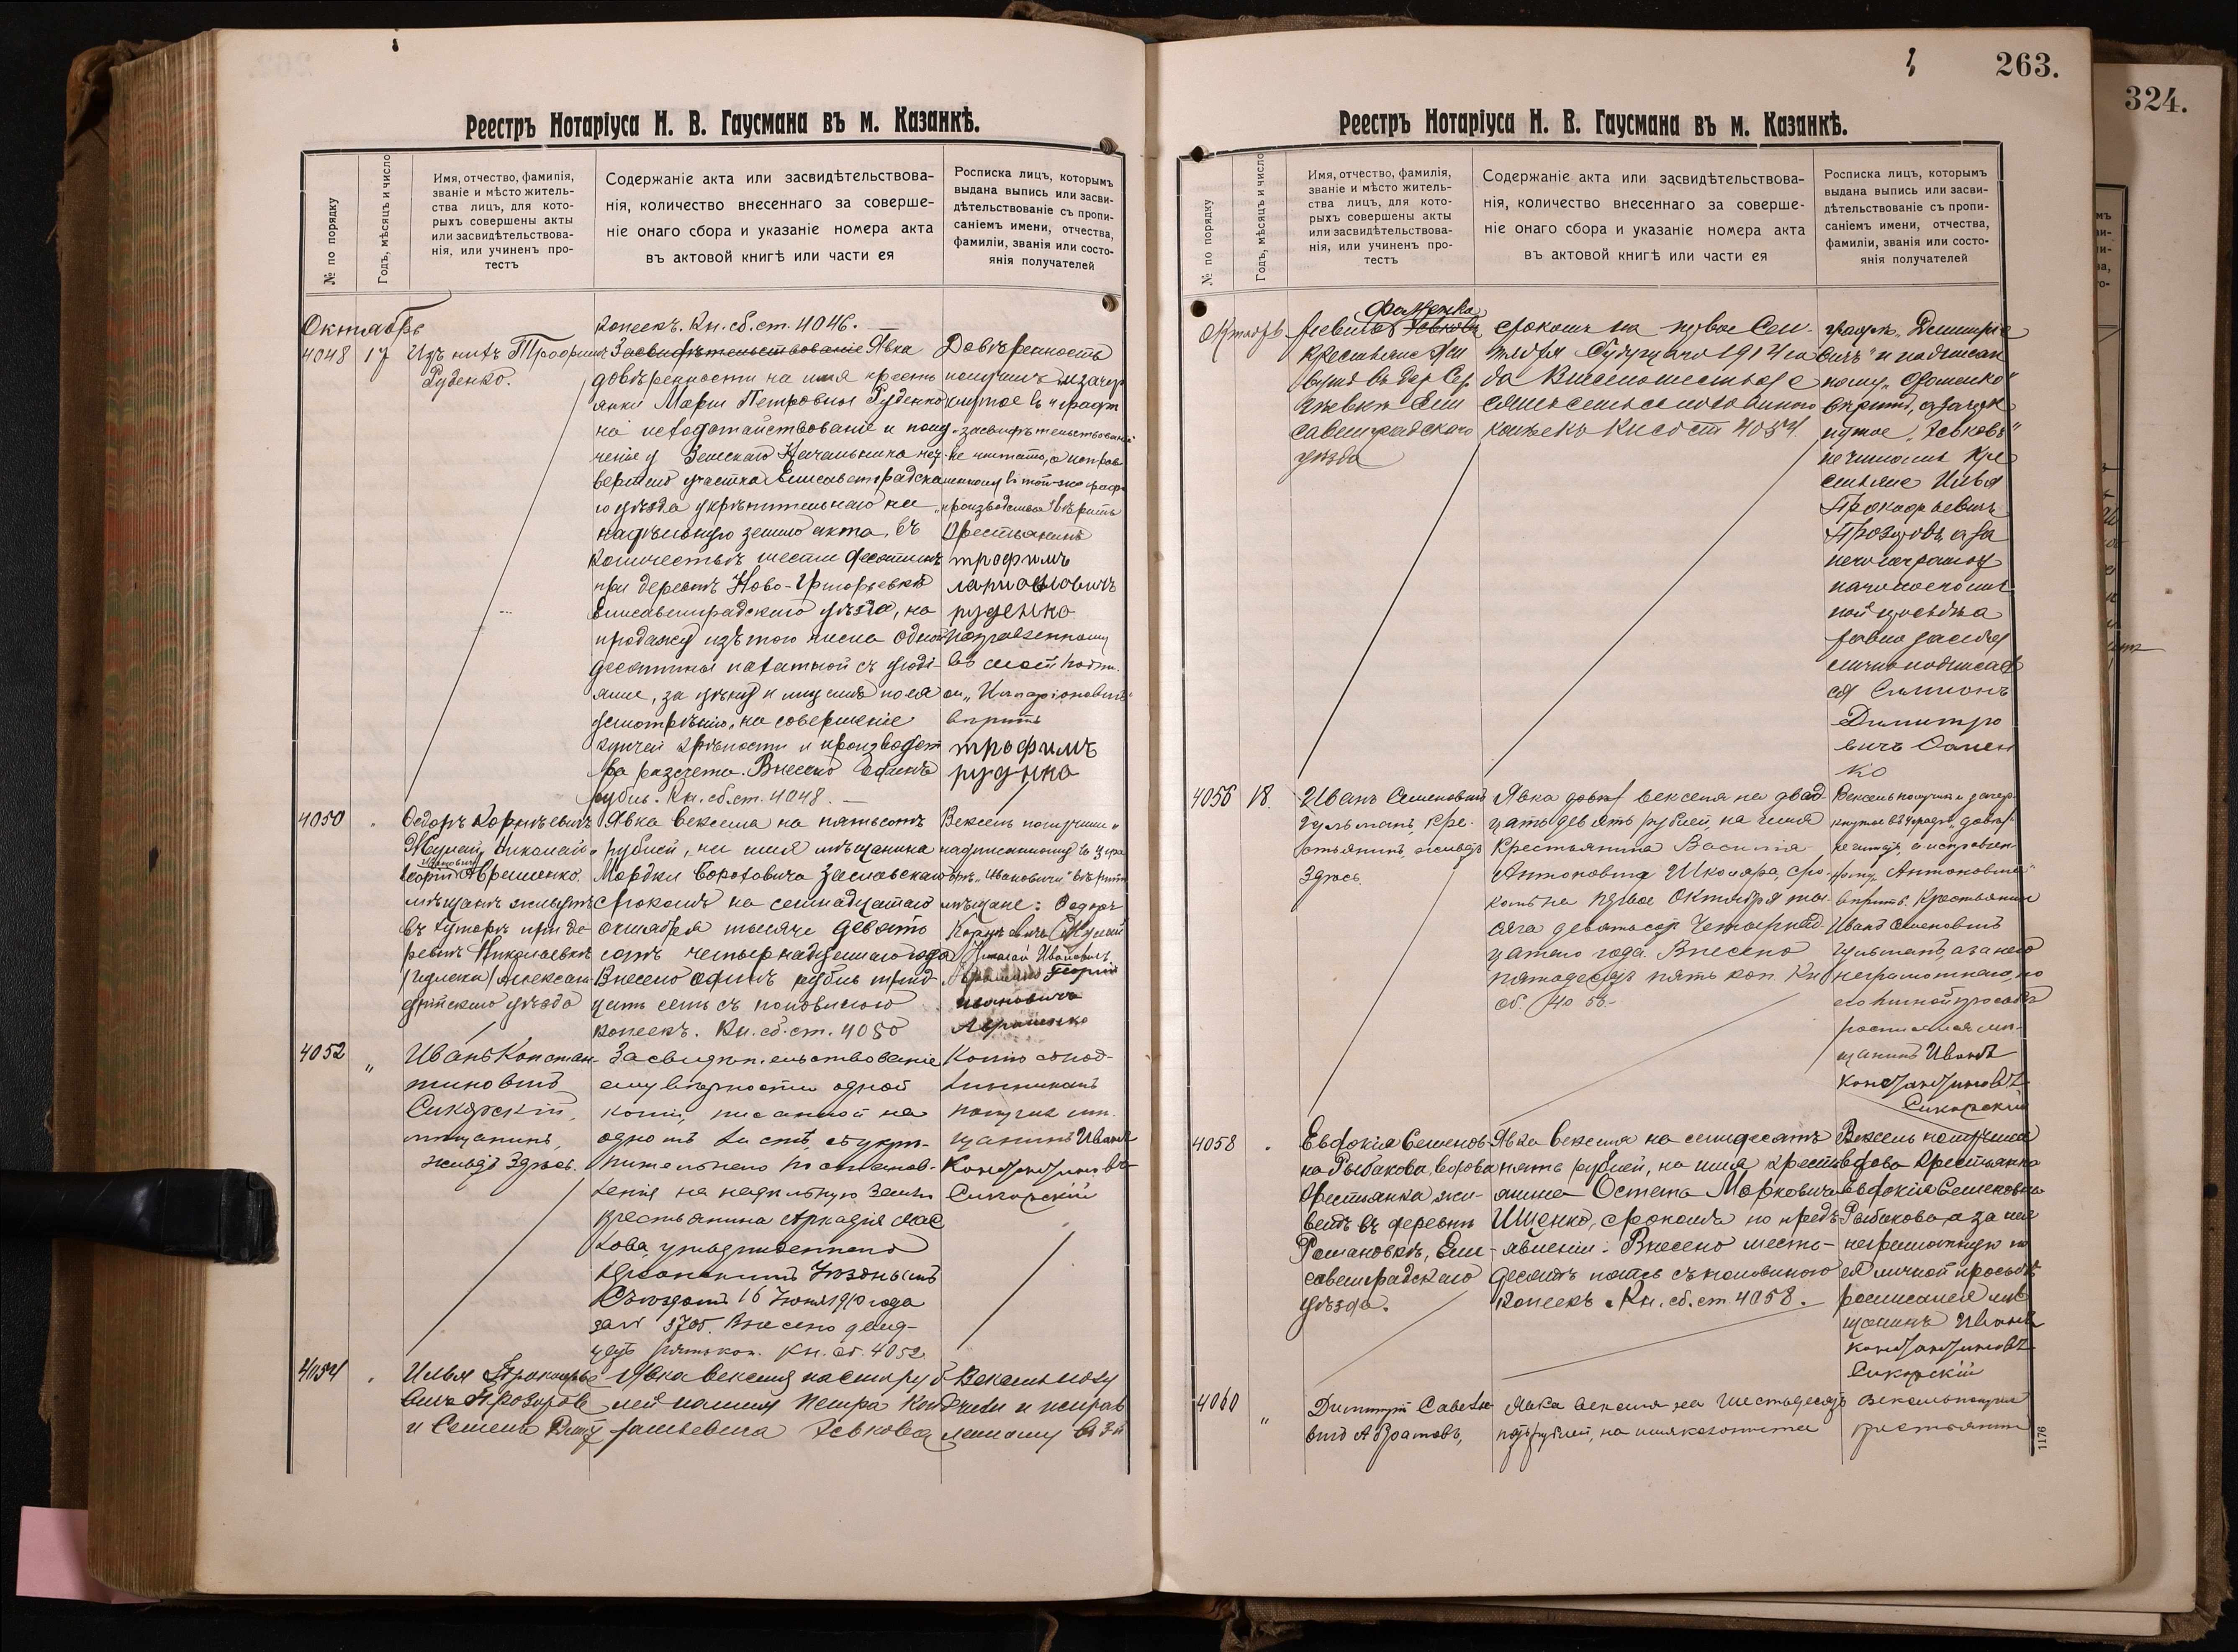 263.
324.
Реестръ Нотаріуса Н. В. Гаусмана въ м. Казанкѣ.
№ по порядку
Годъ, мѣсяцъ и число
Имя, отчество, фамилія,
званіе и мѣсто житель-
ства лицъ, для кото-
рыхъ совершены акты
или засвидѣтельствова-
нія, или учиненъ про-
тестъ
Содержаніе акта или засвидѣтельствова-
нія, количество внесеннаго за соверше-
ніе онаго сбора и указаніе номера акта
въ актовой книгѣ или части ея
Росписка лицъ, которымъ
выдана выпись или засви-
дѣтельствованіе съ пропи-
саніемъ имени, отчества,
фамиліи, званія или состо-
янія получателей
Октябрь
копеекъ. Кн. сб. ст. 4046.
4048 17
Трофимъ
Руденко.
Засвидѣтельствованіе Явка
довѣренности на имя кресть
янки Маріи Петровны Руденко
на исходатайствованіе и полу
ченія у Земскаго Начальника
вертаго участка Елисаветградска
го уѣзда укрѣпительнаго на
надѣльную землю акта, въ
количествѣ шести десятинъ
при деревнѣ Ново-Григорьевкѣ
Елисаветградскаго уѣзда, на
продажу изъ того числа одной
десятины пахатной съ угоді-
ями, за цѣну и лицамъ по ея
усмотрѣнію, на совершеніе
купчей крѣпости и производст
ва разсчета. Внесено одинъ
рубль. Кн. сб. ст. 4048.
Довѣренность
получилъ и зачер
кнутое въ графѣ
засвидѣтельствованіе
не читать, а исправ
ленному въ той-же графѣ
производства вѣрить
Крестьянинъ
трофимъ
ларионовичъ
руденко
Исправленному
Иларіоновичъ
вѣрить
трофимъ
руденко
4050
Ѳедоръ Корнѣевичъ
Николай
Ивановичъ
Георгій Авраменко.
мѣщане живутъ
въ хуторѣ при де
ревнѣ Николаевкѣ
Александ
рійскаго уѣзда
Явка векселя на пятьсотъ
рублей, на имя мѣщанина
Мордки Бороховича Заславскаго
срокомъ на семнадцатаго
октября тысяча девять
сотъ четырнадцатаго года
Внесено одинъ рубль трид-
цать семь съ половиною
копеекъ. Кн. сб. ст. 4050
Вексель получили
надписанному въ 3 гра
фѣ "Ивановичъ" вѣрить
мѣщане: Ѳедоръ
Корнѣевичъ
Николай Ивановичъ
Георгій
Ивановичъ
Авраменко
4052
"
Иванъ Констан-
тиновичъ
Сикорскій,
мѣщанинъ,
живетъ здѣсь.
Засвидѣтельствованіе
вѣрности одной
копіи, писанной на
одномъ листѣ, съ укрѣ-
пительнаго постанов-
ленія на надѣльную землю
крестьянина Аркадія
утвержденнаго
Херсонскимъ Уѣзднымъ
Съѣздомъ 16 Іюня 1910 года
за № 3705. Внесено двад-
цать пять коп. Кн. сб. 4052
Копію съ под-
линникомъ
получилъ мѣ-
щанинъ Иванъ
Константиновъ
Сикорскій
4054
Илья Прокофье
вичъ Прозоровъ
и Семенъ Дмит
Явка векселя на сто руб
лей на имя Петра Кон
дратьевича Хевкова
Вексель полу
чили и исправ
ленному въ 3 й
Реестръ Нотаріуса Н. В. Гаусмана въ м. Казанкѣ.
№ по порядку
Годъ, мѣсяцъ и число
Имя, отчество, фамилія,
званіе и мѣсто житель-
ства лицъ, для кото-
рыхъ совершены акты
или засвидѣтельствова-
нія, или учиненъ про-
тестъ
Содержаніе акта или засвидѣтельствова-
нія, количество внесеннаго за соверше-
ніе онаго сбора и указаніе номера акта
въ актовой книгѣ или части ея
Росписка лицъ, которымъ
выдана выпись или засви-
дѣтельствованіе съ пропи-
саніемъ имени, отчества,
фамиліи, званія или состо-
янія получателей
Октябрь
ріевичъ
Крестьяне жи
вутъ въ дер Сер
гѣевкѣ Ели
саветградскаго
уѣзда
срокомъ на первое Сен-
тября будущаго 1914 го
да Внесено шестьдес
ятъ семь съ половиною
копѣекъ Кн сб ст 4054.
графѣ "Димитріе
вичъ" и надписан
ному
вѣрить, а зачерк
нутое "Хевковъ"
не читать Кре
стьяне Илья
Прокофьевичъ
Прозоровъ, а за
него неграмот
наго по его лич
ной просьбѣ а
равно за себя
лично подписал
ся Симионъ
Димитро
вичъ
ко
4056 18.
Иванъ Семеновичъ
Гульманъ, кре-
стьянинъ, живетъ
здѣсь.
Явка векселя на двад-
цать девять рублей, на имя
Крестьянина Василія
Антоновича Школяра, сро-
комъ на первое Октября ты-
сяча девятьсотъ четырнад-
цатаго года. Внесено
пятьдесятъ пять коп Кн
сб. 4056.
Вексель получилъ и зачер-
кнутое въ 4 графѣ
не читать, а исправлен-
ному "Антоновича"
вѣрить. Крестьянинъ
Иванъ Семеновичъ
Гульманъ, а за него
неграмотнаго, по
его личной просьбѣ
росписался мѣ-
щанинъ Иванъ
Константиновъ
Сикорскій
4058
Евдокія Семенов-
на Рыбакова, вдова
крестьянка жи-
ветъ въ деревнѣ
Романовкѣ, Ели-
саветградскаго
уѣзда.
Явка векселя на семьдесятъ
пять рублей, на имя кресть
янина Остапа Марковича
Ищенко, срокомъ по предъ-
явленіи. Внесено шесть-
десятъ пять съ половиною
копеекъ. Кн. сб. ст 4058.
Вексель получила
вдова крестьянка
Евдокія Семеновна
Рыбакова, а за нея
неграмотную по
ея личной просьбѣ
росписался мѣ
щанинъ Иванъ
Константиновъ
Сикорскій
4060
"
Димитрій Савелье
вичъ Абрамовъ,
Явка векселя на шестьдесятъ
пять рублей, на имя
Вексель получилъ
крестьянинъ
1176